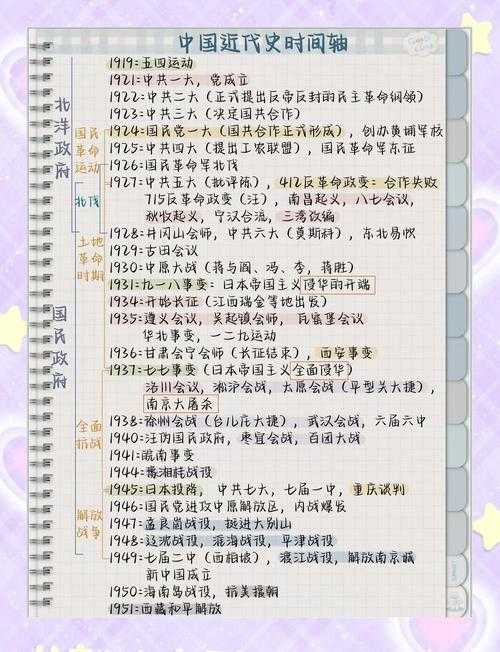 中国近代史时间轴
1919:五四运动
1921:中共一大，党成立
1922:中共二大（正式提出反帝反封的民主革命纲领）
1923:中共三大（决定国共合作）
1924:国民党一大（国共合作正式形成），创办黄埔军校
1925:中共四大（提出工农联盟），国民革命军东征
1926:国民革命军北伐
1927:中共五大（批评陈），412反革命政变：合作失败
715反革命政变（汪），南昌起义，八七会议，
秋收起义，宁汉合流，三湾改编
1928:井冈山会师，中共六大（莫斯科），东北易帜
1929:古田会议
1930:中原大战（蒋与阎、冯、李，蒋胜）
1931:九一八事变：日本帝国主义侵华的开端
1934:开始长征（江西瑞金等地出发）
1935:遵义会议，吴起镇会师，瓦窑堡会议
华北事变，一二九运动
1936:甘肃会宁会师（长征结束），西安事变
1937:七七事变（日本帝国主义全面侵华）
洛川会议，淞沪会战，太原会战（平型关大捷），
南京大屠杀
1938:徐州会战（台儿庄大捷），武汉会战，六届六中
1940:汪伪国民政府，枣宜会战，百团大战
1941:皖南事变
1944:豫湘桂战役
1945:日本投降，中共七大，七届一中，重庆谈判
1946:国民党进攻中原解放区，内战爆发
1947:孟良崮战役，挺进大别山
1948:辽沈战役，淮海战役，平津战役
1949:七届二中（西柏坡），渡江战役，解放南京
新中国成立
1950:海南岛战役，抗美援朝
1951:西藏和平解放
北洋政府
国民政府
国民革命运动
北伐
土地革命时期
全面抗战
解放战争